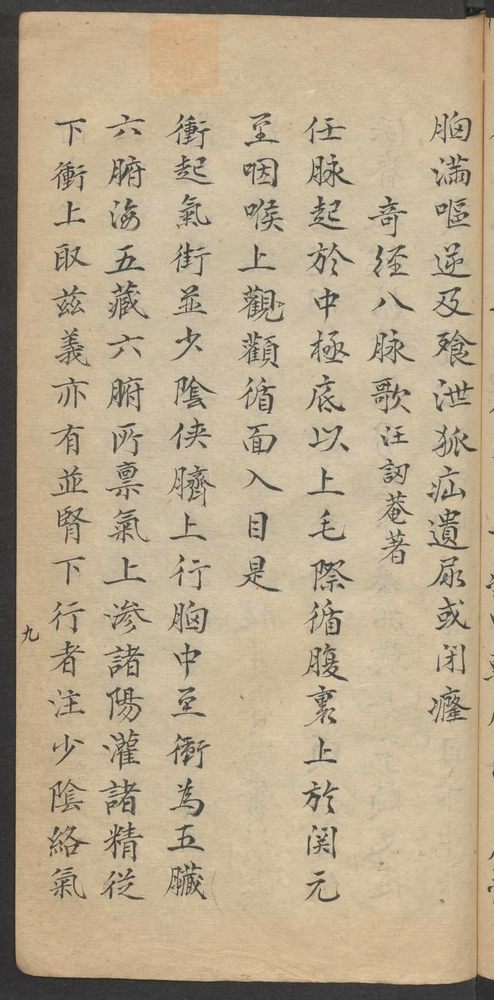 胸滿嘔逆及飱泄狐疝遺尿或閉癃
奇経八脉歌汪訒菴著
任脉起於中極底以上毛際循腹裏上於関元
至咽喉上觀顴循面入目是
衝起氣街並少陰俠臍上行胸中至衝為五臟
六腑海五藏六腑所禀氣上滲諸陽灌諸精従
下衝上取茲義亦有並腎下行者注少陰絡氣
九